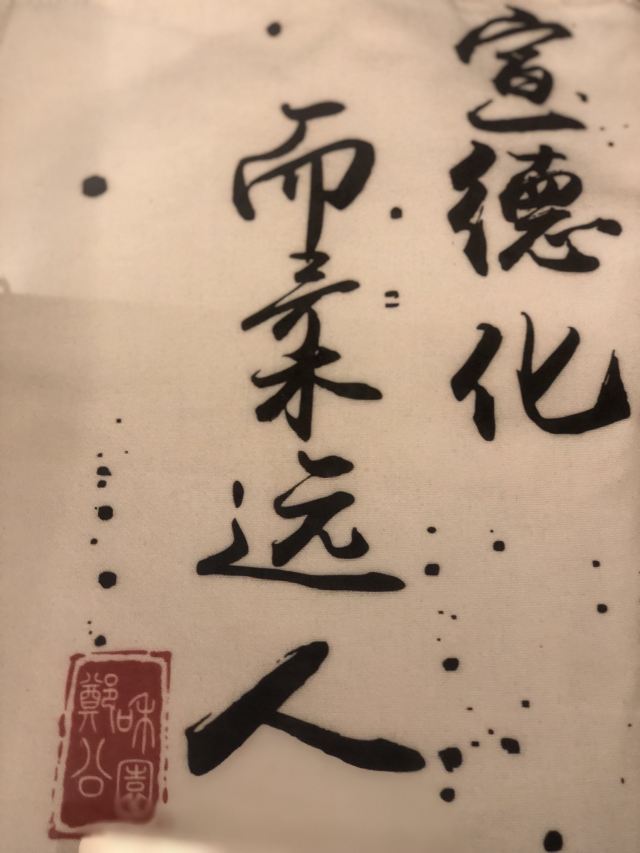 宣德化
而柔远人
味園
鄭公